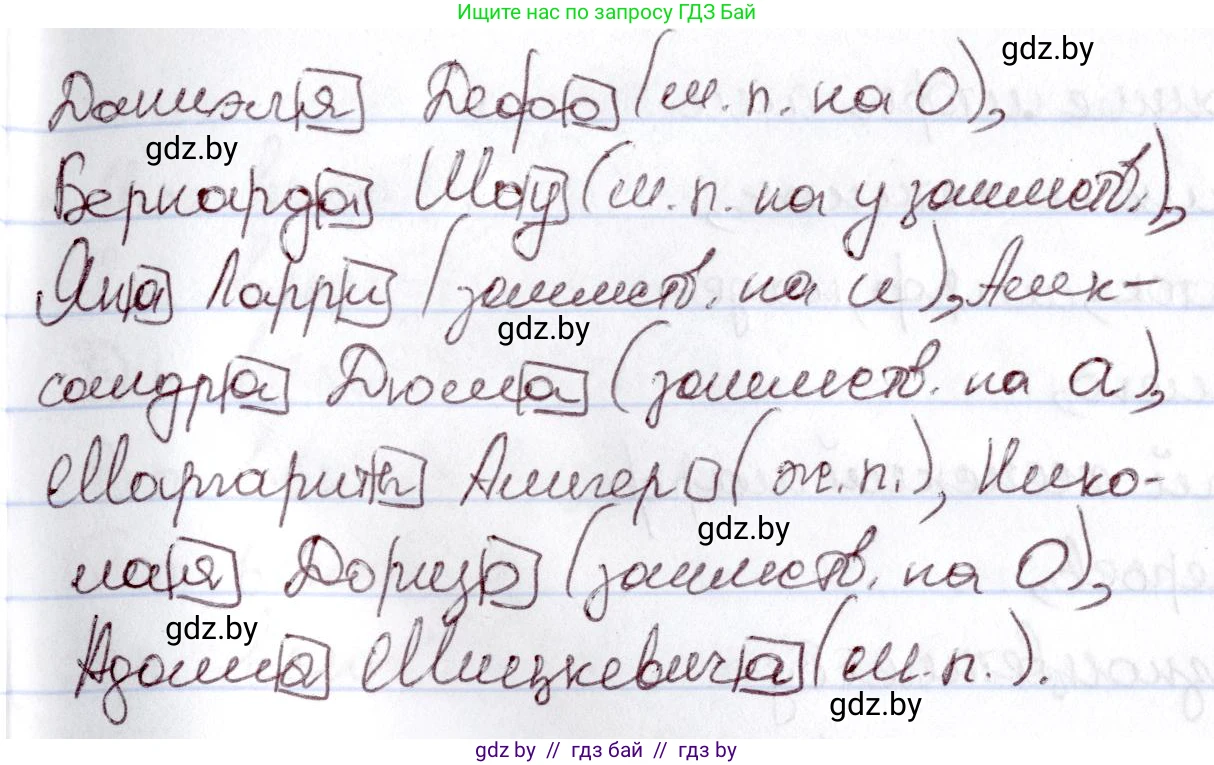 Ищите нас по запросу ГДЗ Бай
gdz.by
Даниэля Дефо (м. п. на О),
gdz.by
Бернарда Шоу (м. п. на у заимств.),
Яна Ларри (заимств. на и), Алек-
gdz.by
сандра Дюма (заимств. на а),
Маргариты Алигер (ж. п.), Нико-
gdz.by
лая Доризо (заимств. на О),
gdz.by
Адама Мицкевича (м. п.).
gdz.by
gdz by // гдз бай // гдз by